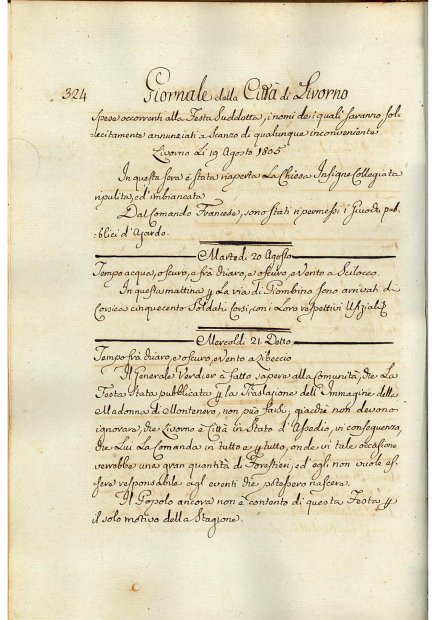 324
Giornale della Città di Livorno
Spese occorrenti alla Festa Suddotta, i nomi de i quali saranno sol-
lecitamente annunziati a Scanzo di qualunque inconveniente
Livorno Li 19 Agosto 1805
In questa sera è stata riaperta La Chiesa Insigne Collegiata
ripulita, ed imbiancata
Dal Comando Francese, sono stati ripermessi i Giuochi pub-
blici d'Azardo.
Martedi 20 Agosto
Tempo acqua, oscuro, e frà chiaro, e oscuro, e Vento a Scilocco.
In questa mattina p La via di Piombino sono arrivati di
Corsica cinquecento Soldati Corsi, con i Loro respettivi Ufziali
Mercoldi 21. Detto
Tempo frà chiaro, e oscuro, e Vento a Libeccio
Il Generale Verdier à fatto sapere alla Comunità, che La
Festa Stata pubblicata p la Traslazione dell'Immagine della
Madonna di Montenero, non può farsi, giacchè non devono
ignorare, che Livorno è Città in Stato d'Assedio, in conseguenza,
che Lui La Comanda in tutto e p tutto, onde in tale occasione
verrebbe una gran quantità di Forestieri, ed egli non vuole es-
sere responsabile agl'eventi che potessero nascere.
Il Popolo ancora non è contento di questa Festa p
il solo motivo della Stagione.